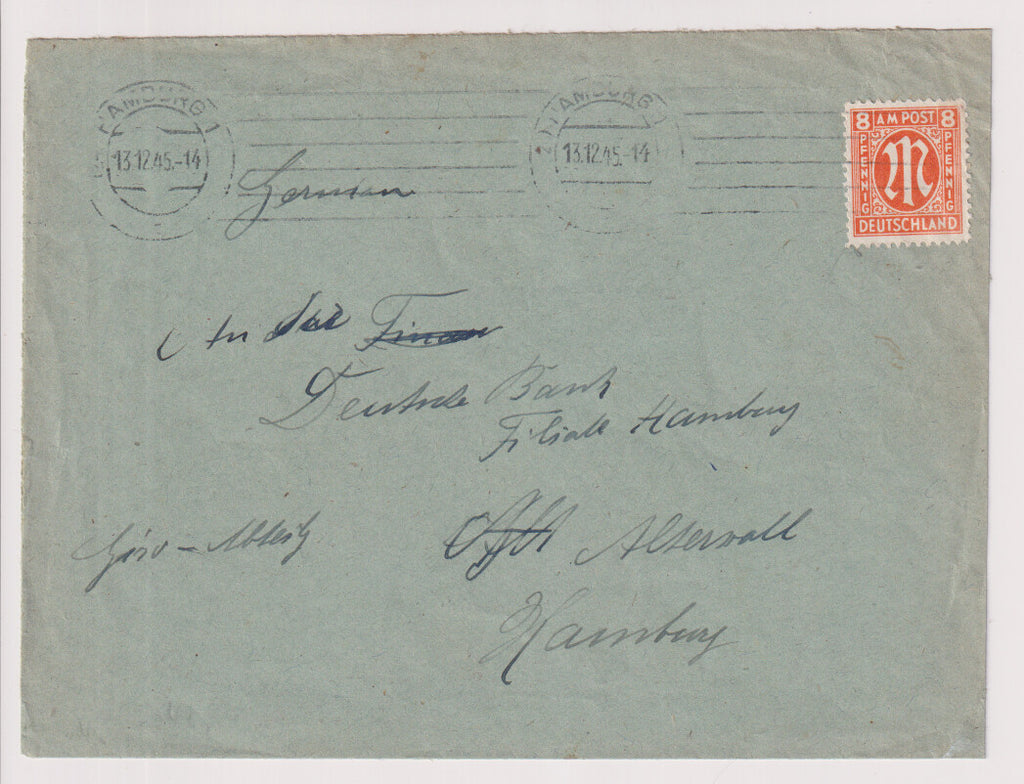 HAMBURG 1
13.12.45.-14
HAMBURG 1
13.12.45.-14
8 AM POST 8
PFENNIG
PFENNIG
DEUTSCHLAND
German
An die
Deutsche Bank
Filiale Hamburg
Giro-Abteilg
Alterwall
Hamburg